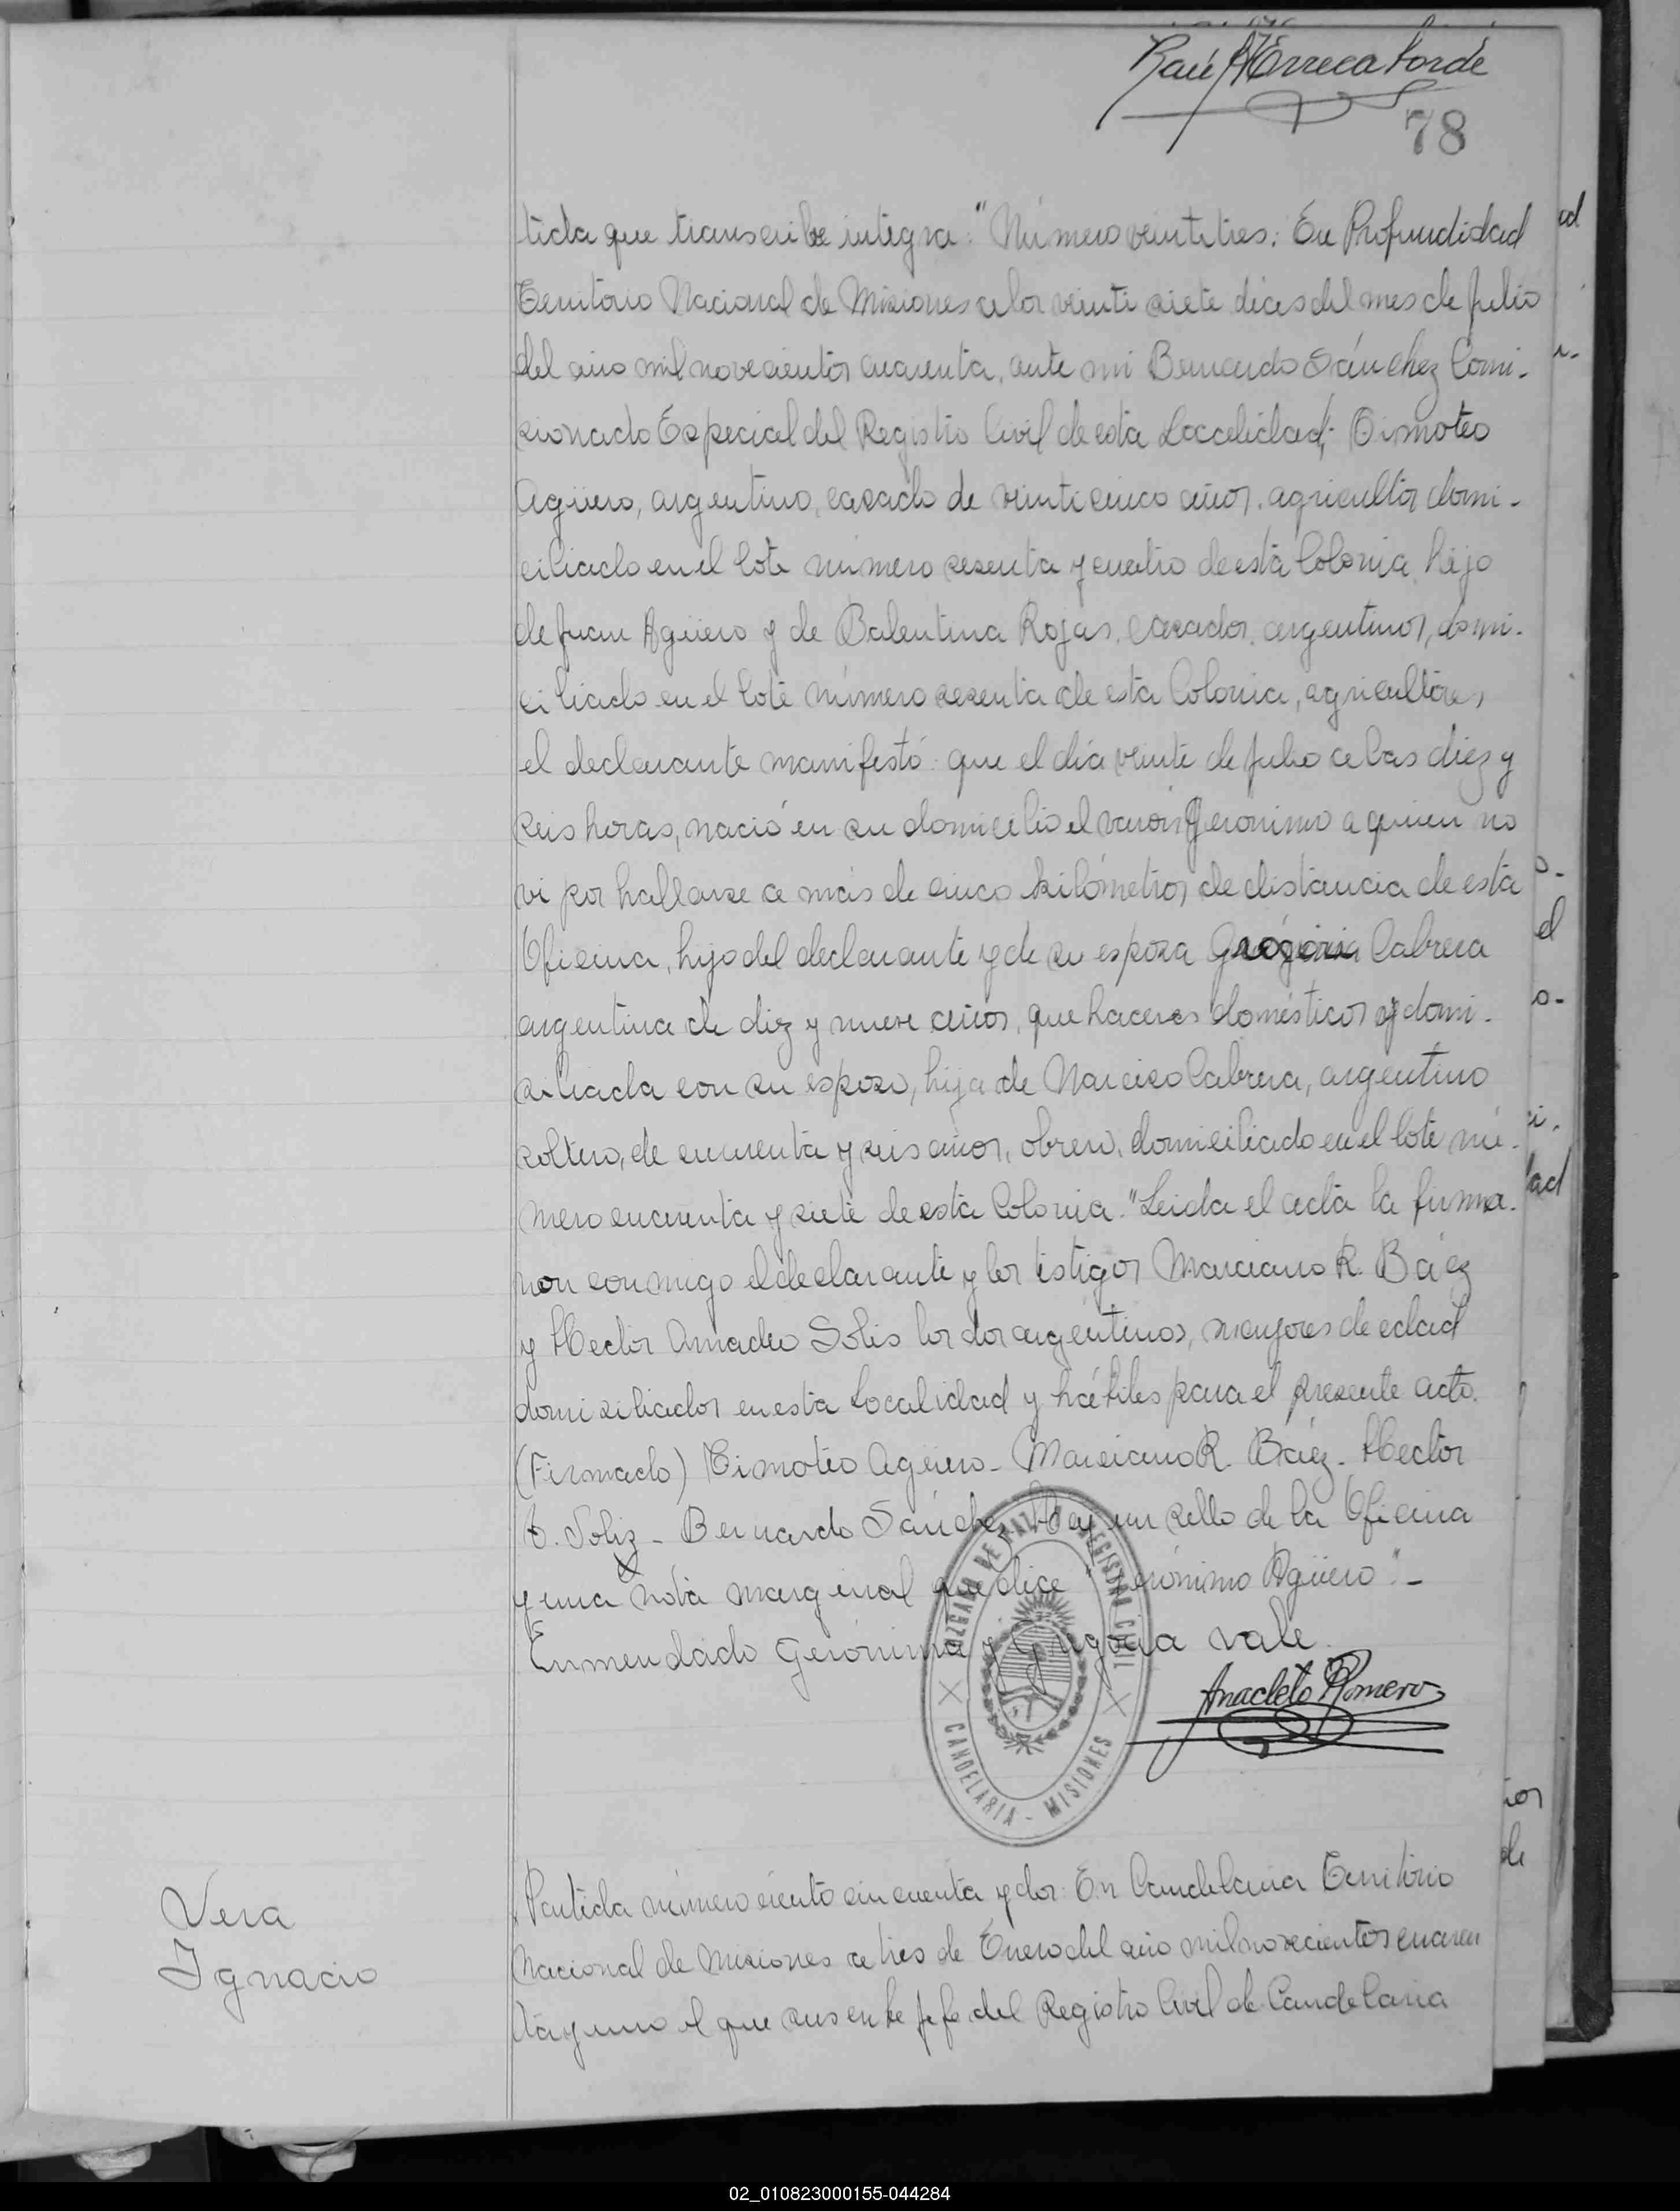 78
tida que transcribe integra: "Número veintitres: En Profundidad
Territorio Nacional de Misiones a los veinti siete dias del mes de Julio
del año mil novecientos cuarenta, ante mi Bernardo Sánchez Comi-
sionado Especial del Registro Civil de esta Localidad; Timoteo
Agüero, argentino, casado de veinticinco años, agricultor domi-
ciliado en el lote número sesenta y cuatro de esta Colonia, hijo
de Juan Agüero y de Balentina Rojas, casados, argentinos, domi-
ciliado en el lote número sesenta de esta Colonia, agricultores,
el declarante manifestó: que el día veinte de Julio a las diez y
seis horas, nació en su domicilio el varón Gerónimo a quien no
vi por hallarse a más de cinco kilómetros de distancia de esta
Oficina, hijo del declarante y de su esposa Gregoria Cabrera
argentina de diez y nueve años, que haceres domésticos y domi-
ciliada con su esposo, hija de Narciso Cabrera, argentino
soltero, de cuarenta y seis años, obrero, domiciliado en el lote nú-
mero cuarenta y siete de esta Colonia." Leida el acta la firma-
ron conmigo el declarante y los testigos Marciano R. Báez
y Hector Amadeo Solis los dos argentinos, mayores de edad
domiciliados en esta Localidad y hábiles para el presente acto.
(Firmado) Timoteo Agüero - Marciano R. Báez - Hector
Soliz - Bernardo Sánchez Hay un sello de la Oficina
y una nota marginal que dice "Gerónimo Agüero".-
Enmendado Gerónimo y Gregoria vale.
Anacleto Romero
JUZGADO DE PAZ REGISTRO CIVIL
CANDELARIA - MISIONES
Vera
Ignacio
Partida número ciento cincuenta y dos: En Candelaria Territorio
Nacional de Misiones a tres de Enero del año mil novecientos cuaren
ta y uno el que suscribe Jefe del Registro Civil de Candelaria
02_010823000155-044284